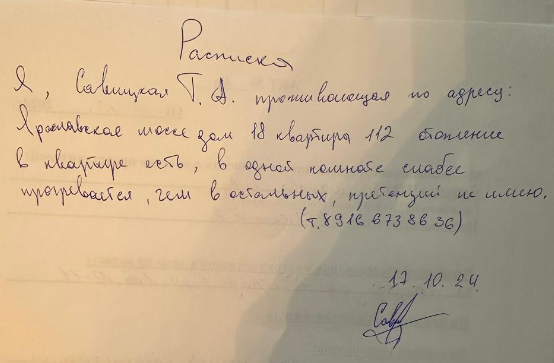 Расписка
Я, Савицкая Т. А. проживающая по адресу:
Ярославское шоссе дом 18 квартира 112 отопление
в квартире есть, в одной комнате слабее
прогревается, чем в остальных, претензий не имею.
(т.8916 673 86 36)
17.10.24